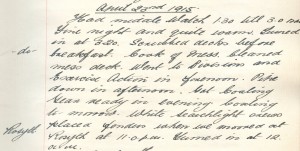 April 23rd 1915.
Had middle Watch 1.30 till 3.30 am
Fine night and quite warm. Turned
-do- in at 3.50. Scrubbed decks before
breakfast. Cook of Mess, cleaned
mess deck. Went to Division and
Exercise Action in forenoon. Pipe
down in afternoon. Got Coaling
Gear ready in evening coaling
to morrow. White Searchlight
placed when we moored at
Rosyth Rosyth at 11.0 p.m. Turned in at 12.